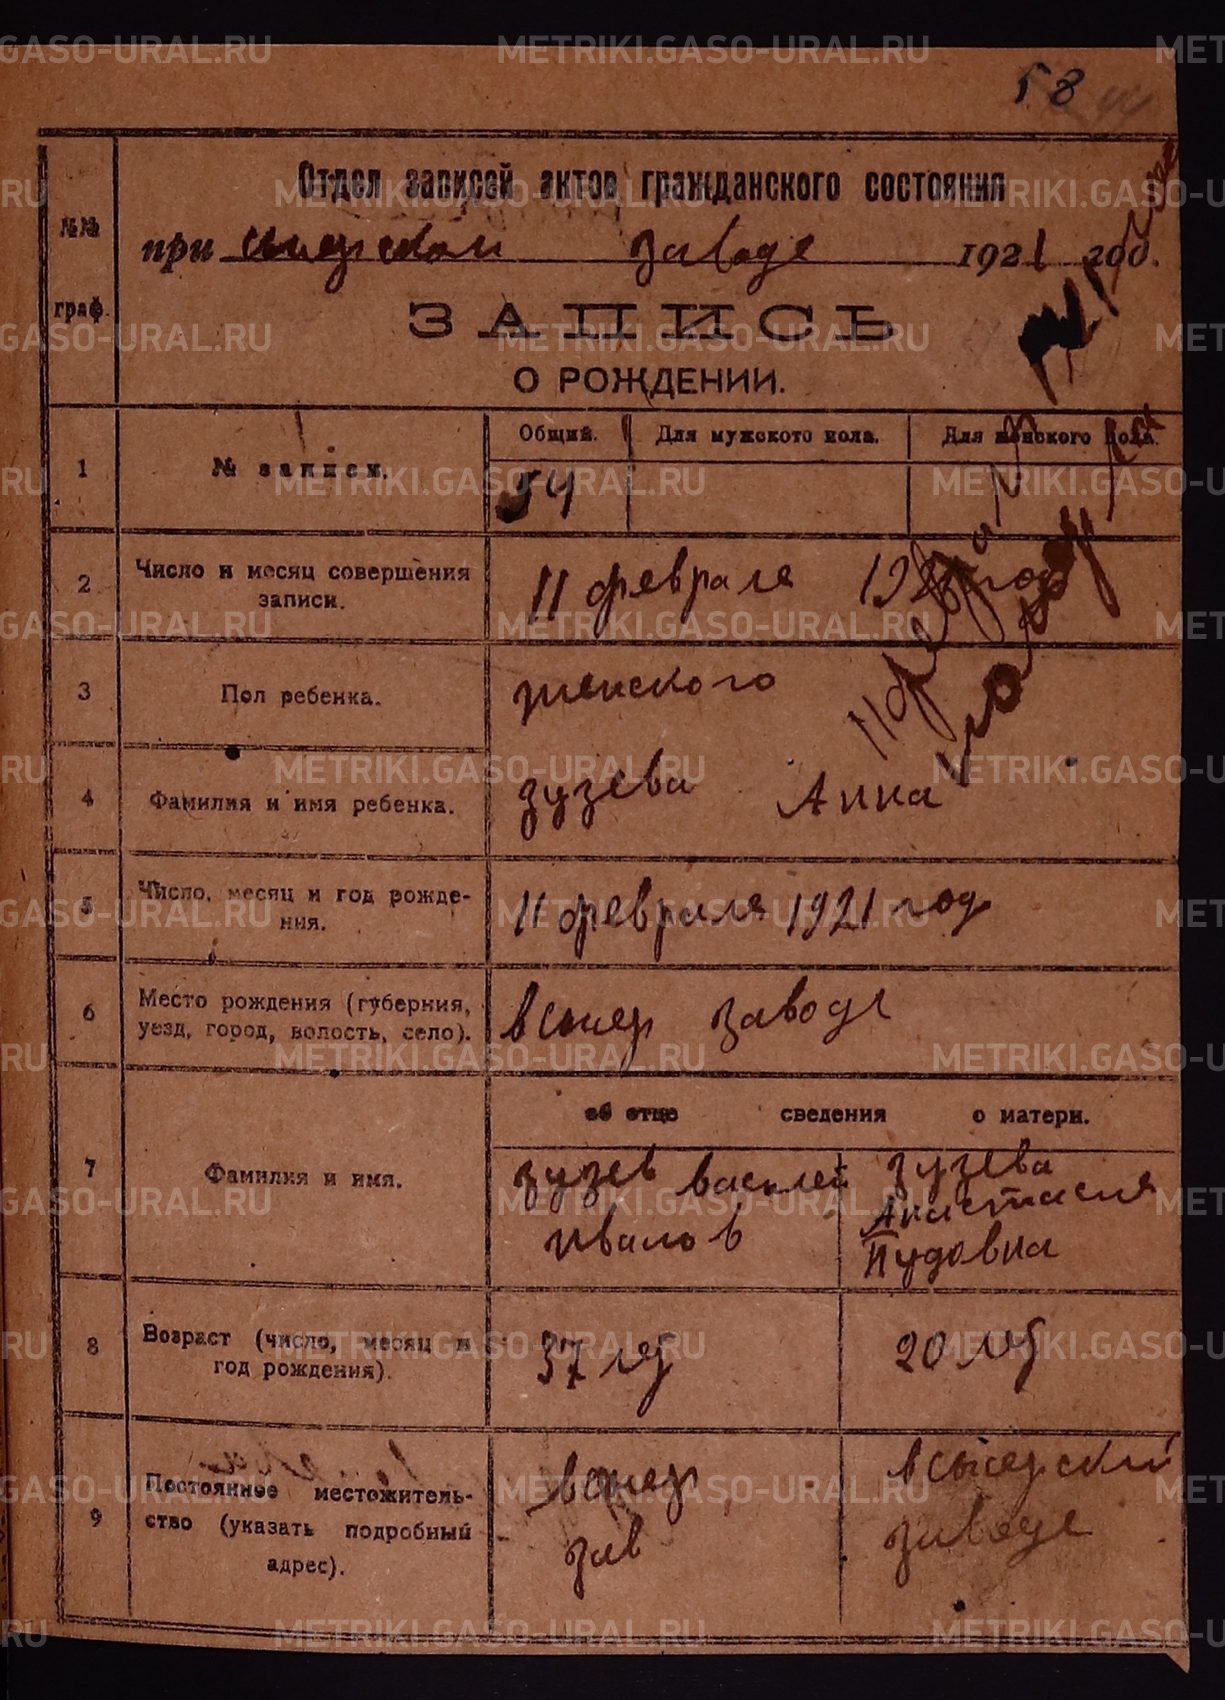 58
Отдел записей актов гражданского состояния
№№ граф.
при заводе 1921 год.
ЗАПИСЬ
О РОЖДЕНИИ.
1 № записи. Общий. Для мужского пола. Для женского пола.
54
2 Число и месяц совершения записи. 11 февраля 1921 год
3 Пол ребенка. женского
4 Фамилия и имя ребенка. Зузева Анна
5 Число, месяц и год рождения. 11 февраля 1921 год
6 Место рождения (губерния, уезд, город, волость, село). заводе
об отце сведения о матери.
7 Фамилия и имя. Зузев Василей Иванов
Зузева Анастасия Пудовна
8 Возраст (число, месяц и год рождения). 37 лет 20 лет
9 Постоянное местожительство (указать подробный адрес). зав
заводе
METRIKI.GASO-URAL.RU